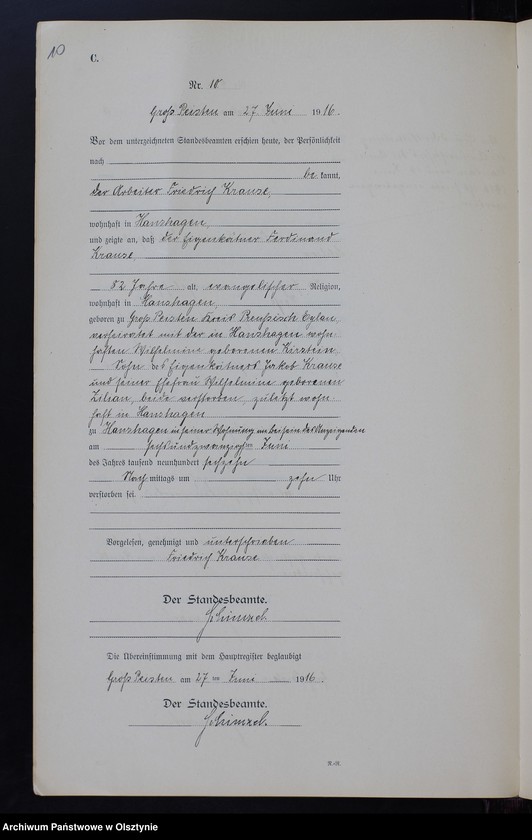 10
C.
Nr. 10
Groß Peisten am 27 Juni 1916.
Vor dem unterzeichneten Standesbeamten erschien heute, der Persönlichkeit
nach
be kannt,
der Arbeiter Friedrich Krause,
wohnhaft in Hanshagen,
und zeigte an, daß der Eigenkätner Ferdinand
Krause,
82 Jahre alt, evangelischer Religion,
wohnhaft in Hanshagen,
geboren zu Groß Peisten Kreis Preußisch Eylau,
verheiratet mit der in Hanshagen wohn-
haften Wilhelmine geborenen Kirstein,
Sohn des Eigenkätners Jakob Krause
und seiner Ehefrau Wilhelmine geborenen
Zilian, beide verstorben, zuletzt wohn-
haft in Hanshagen
zu Hanshagen in seiner Wohnung im Beisein des Anzeigenden
am sechsundzwanzigsten Juni
des Jahres tausend neunhundert sechzehn
Nach mittags um zehn Uhr
verstorben sei.
Vorgelesen, genehmigt und unterschrieben
Friedrich Krause
Der Standesbeamte.
Schimzel.
Die Übereinstimmung mit dem Hauptregister beglaubigt
Groß Peisten am 27 ten Juni 1916.
Der Standesbeamte.
Schimzel.
Archiwum Państwowe w Olsztynie